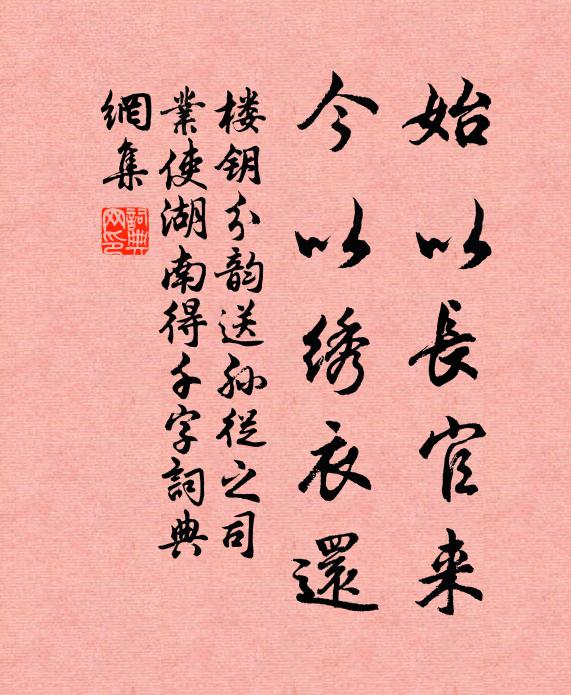 始以長官来
今以绣衣還
楼钥分韵送孙從之司
業使湖南得千字詞典
網集
詞典网印